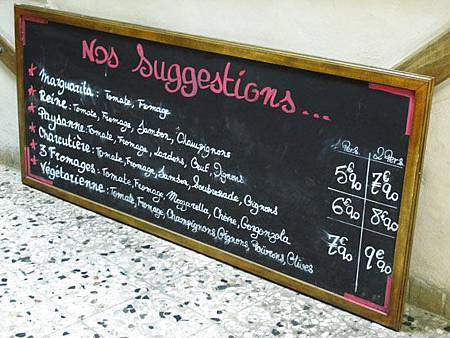 Nos Suggestions...
1 Pers 2 Pers
Marguarita : Tomate, Fromage
Reine : Tomate, Fromage, Jambon, Champignons
Paysanne : Tomate, Fromage, Lardons, Œuf, Oignons
Charcutière : Tomate, Fromage, Jambon, Soubressade, Oignons
3 Fromages : Tomate, Fromage, Mozzarella, Chèvre, Gorgonzola
Végétarienne : Tomate, Fromage, Champignons, Oignons, Poivrons, Olives
5€90 7€90
6€90 8€90
7€90 9€90